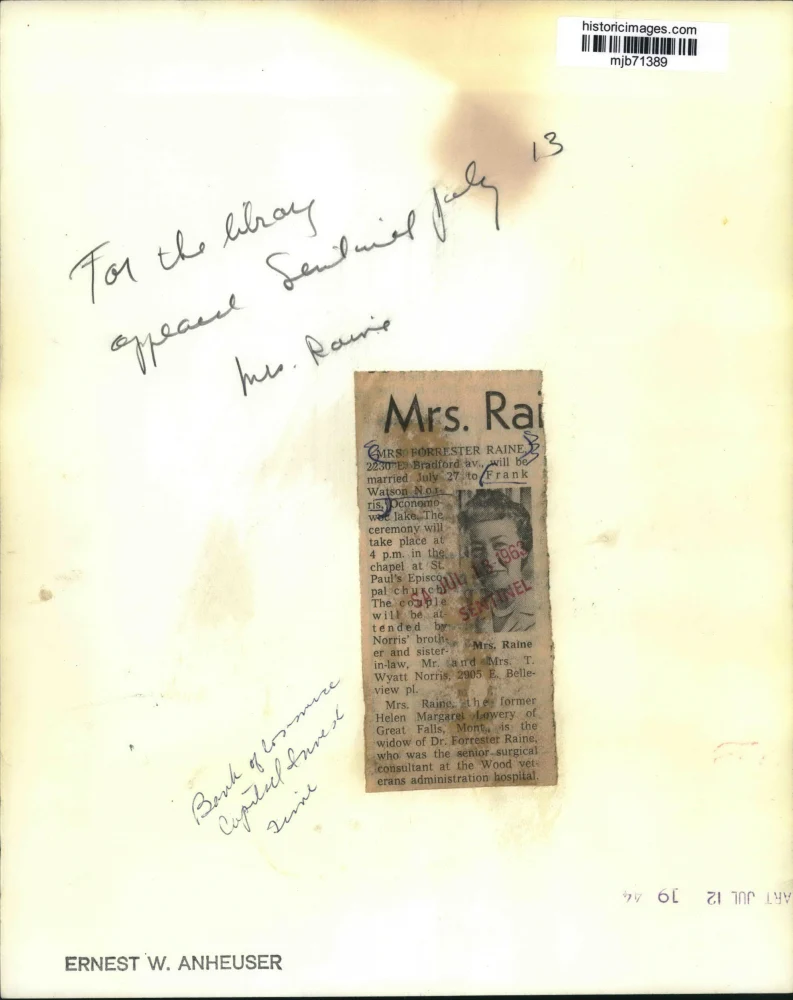 historicimages.com
mjb71389
13
For the library
appeared Sentinel July
Mrs. Raine
Mrs. Rai
MRS. FORRESTER RAINE,
2230 E. Bradford av., will be
married July 27 to Frank
Watson Nor-
ris, Oconomo-
woc lake. The
ceremony will
take place at
4 p.m. in the
chapel at St.
Paul's Episco-
pal church.
The couple
will be at-
tended by
Norris' broth-
er and sister-
in-law, Mr. and Mrs. T.
Wyatt Norris, 2905 E. Belle-
view pl.
Mrs. Raine
SA JUL 13 1963
SENTINEL
Mrs. Raine, the former
Helen Margaret Lowery of
Great Falls, Mont., is the
widow of Dr. Forrester Raine,
who was the senior surgical
consultant at the Wood vet-
erans administration hospital.
Bank of Commerce
Capital
ART JUL 12 19 44
ERNEST W. ANHEUSER